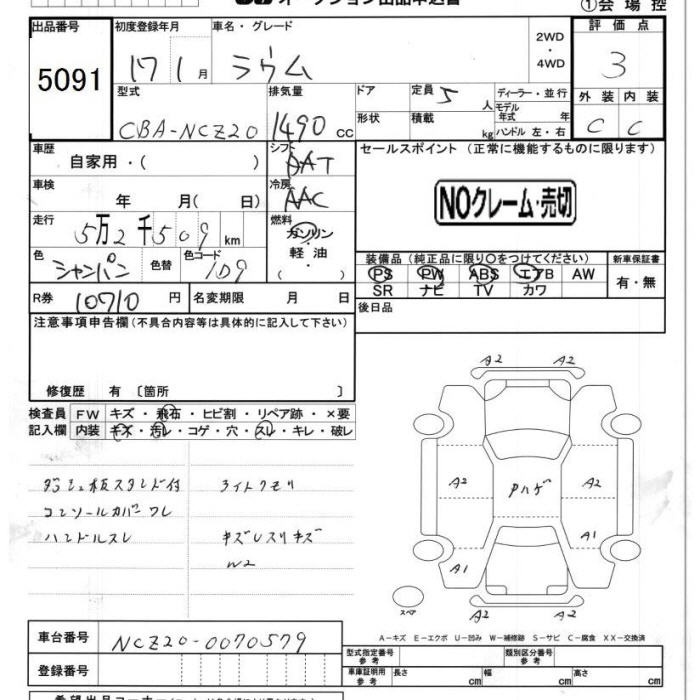 オークション出品申込書
①会場控
出品番号
5091
初度登録年月
17 1月
車名・グレード
ラウム
2WD
・
4WD
評価点
3
外装 内装
C C
型式
CBA-NCZ20
排気量
1490 cc
ドア
形状
定員 5 人
積載 kg
ディーラー・並行
モデル年式 年
ハンドル 左・右
車歴
自家用・( )
シフト
AAT
車検
年 月( 日)
冷房
AAC
走行
5万2千509 km
燃料
ガソリン
・
軽油
・
( )
色
シャンパン
色替
色コード
1D9
R券 10710 円
名変期限 月 日
セールスポイント(正常に機能するものに限ります)
NOクレーム・売切
装備品(純正品に限り○をつけてください)
PS PW ABS エアB AW
SR ナビ TV カワ
新車保証書
有・無
後日品
注意事項申告欄(不具合内容等は具体的に記入して下さい)
修復歴 有 〔箇所 〕
検査員
記入欄
FW キズ・飛石・ヒビ割・リペア跡・×要
内装 キズ・汚レ・コゲ・穴・スレ・キレ・破レ
ダッシュ板スタンド付
コンソールカバーワレ
ハンドルスレ
ライトクモリ
キズレスリキズ
W2
A2 A2
A2
Pハゲ
A2
A1
A1
A2 A2
スペア
A－キズ E－エクボ U－凹み W－補修跡 S－サビ C－腐食 XX－交換済
車台番号
NCZ20-0070579
登録番号
型式指定番号
参考
類別区分番号
参考
車庫証明用
参考
長さ cm
幅 cm
高さ cm
希望出品コーナー